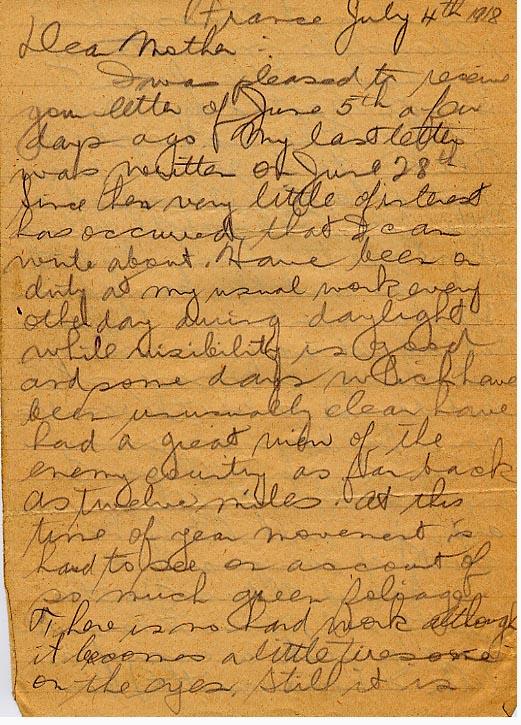 France July 4th 1918
Dear Mother:
I was pleased to receive
your letter of June 5th a few
days ago. My last letter
was written on June 28th
Since then very little of interest
has occured that I can
write about. Have been on
duty at my usual work every
other day during daylight
while visibility is good
and some days which have
been unusually clear have
had a great view of the
enemy country as far back
as twelve miles. At this
time of year movement is
hard to see on account of
so much green foliage
There is no hard work although
it becomes a little tiresome
on the eyes, still it is